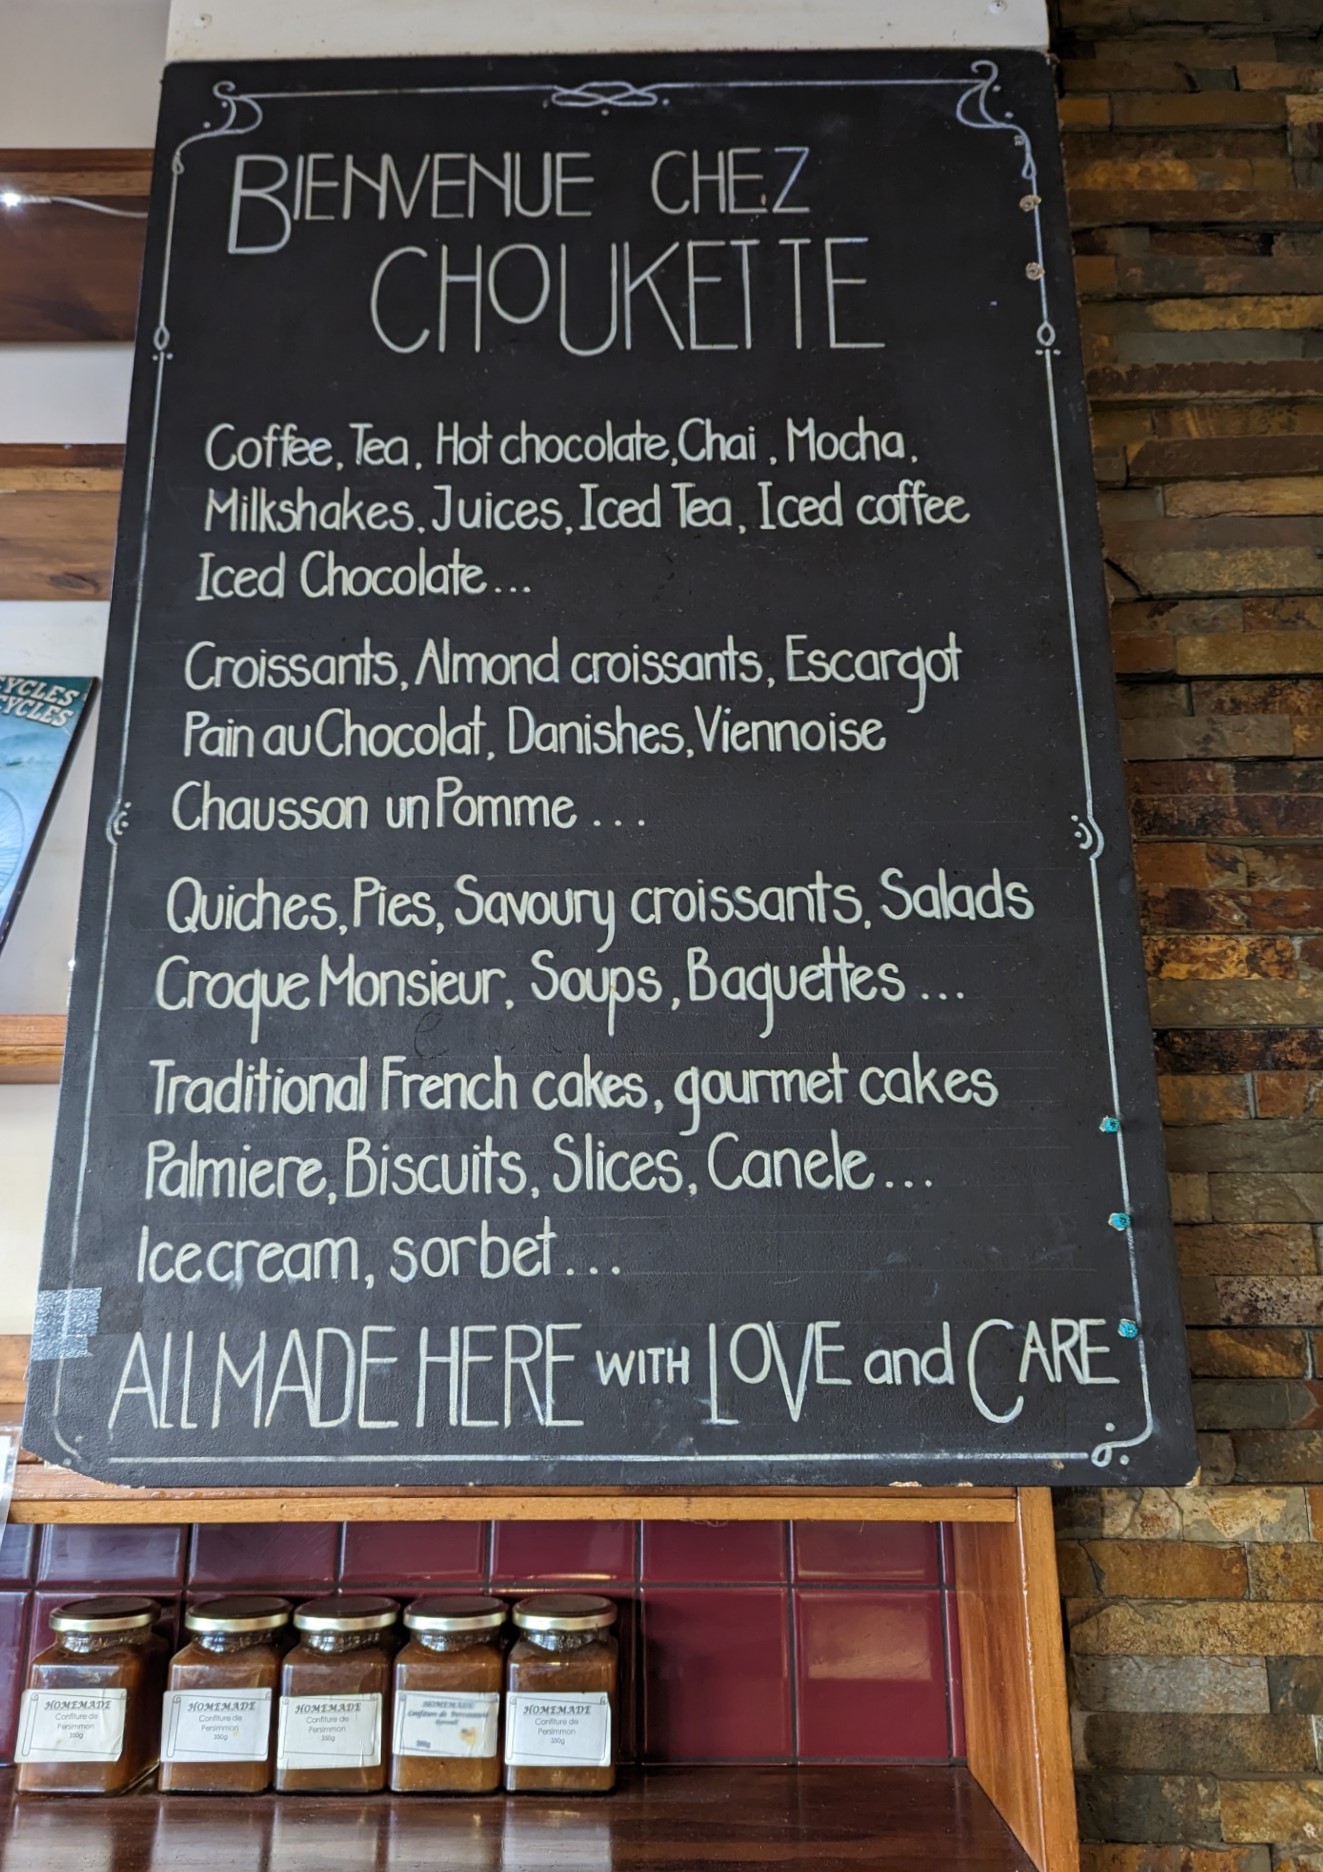 BIENVENUE CHEZ
CHOUKETTE
Coffee, Tea, Hot chocolate, Chai, Mocha,
Milkshakes, Juices, Iced Tea, Iced coffee
Iced Chocolate...
Croissants, Almond croissants, Escargot
Pain au Chocolat, Danishes, Viennoise
Chausson un Pomme ...
Quiches, Pies, Savoury croissants, Salads
Croque Monsieur, Soups, Baguettes ...
Traditional French cakes, gourmet cakes
Palmiere, Biscuits, Slices, Canele...
Icecream, sorbet...
ALL MADE HERE WITH LOVE and CARE
YCLES
YCLES
HOMEMADE
Confiture de
Persimmon
350g
HOMEMADE
Confiture de
Persimmon
350g
HOMEMADE
Confiture de
Persimmon
350g
HOMEMADE
Confiture de
HOMEMADE
Confiture de
Persimmon
350g